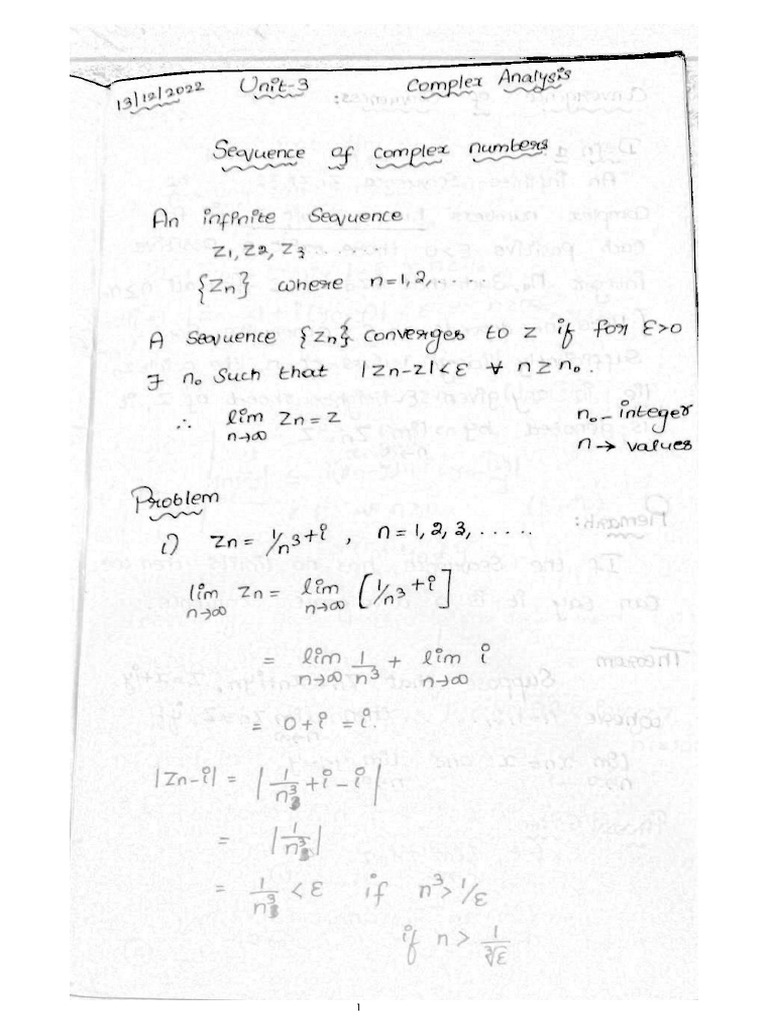 13/12/2022 Unit-3 Complex Analysis
Sequence of complex numbers
An infinite Sequence
z1, z2, z3 .....
{zn} where n=1,2,.....
A Sequence {zn} converges to z if for ε>0
∃ n₀ Such that |zn-z|<ε ∀ n≥n₀.
∴ lim n→∞ zn=z n₀-integer
n→ values
Problem
i) zn = 1/n³+i , n=1,2,3,.....
lim n→∞ zn = lim n→∞ [1/n³+i]
= lim n→∞ 1/n³ + lim n→∞ i
= 0+i = i.
|zn-i| = |1/n³+i-i|
= |1/n³|
= 1/n³ < ε if n³>1/ε
if n > 1/∛ε
1